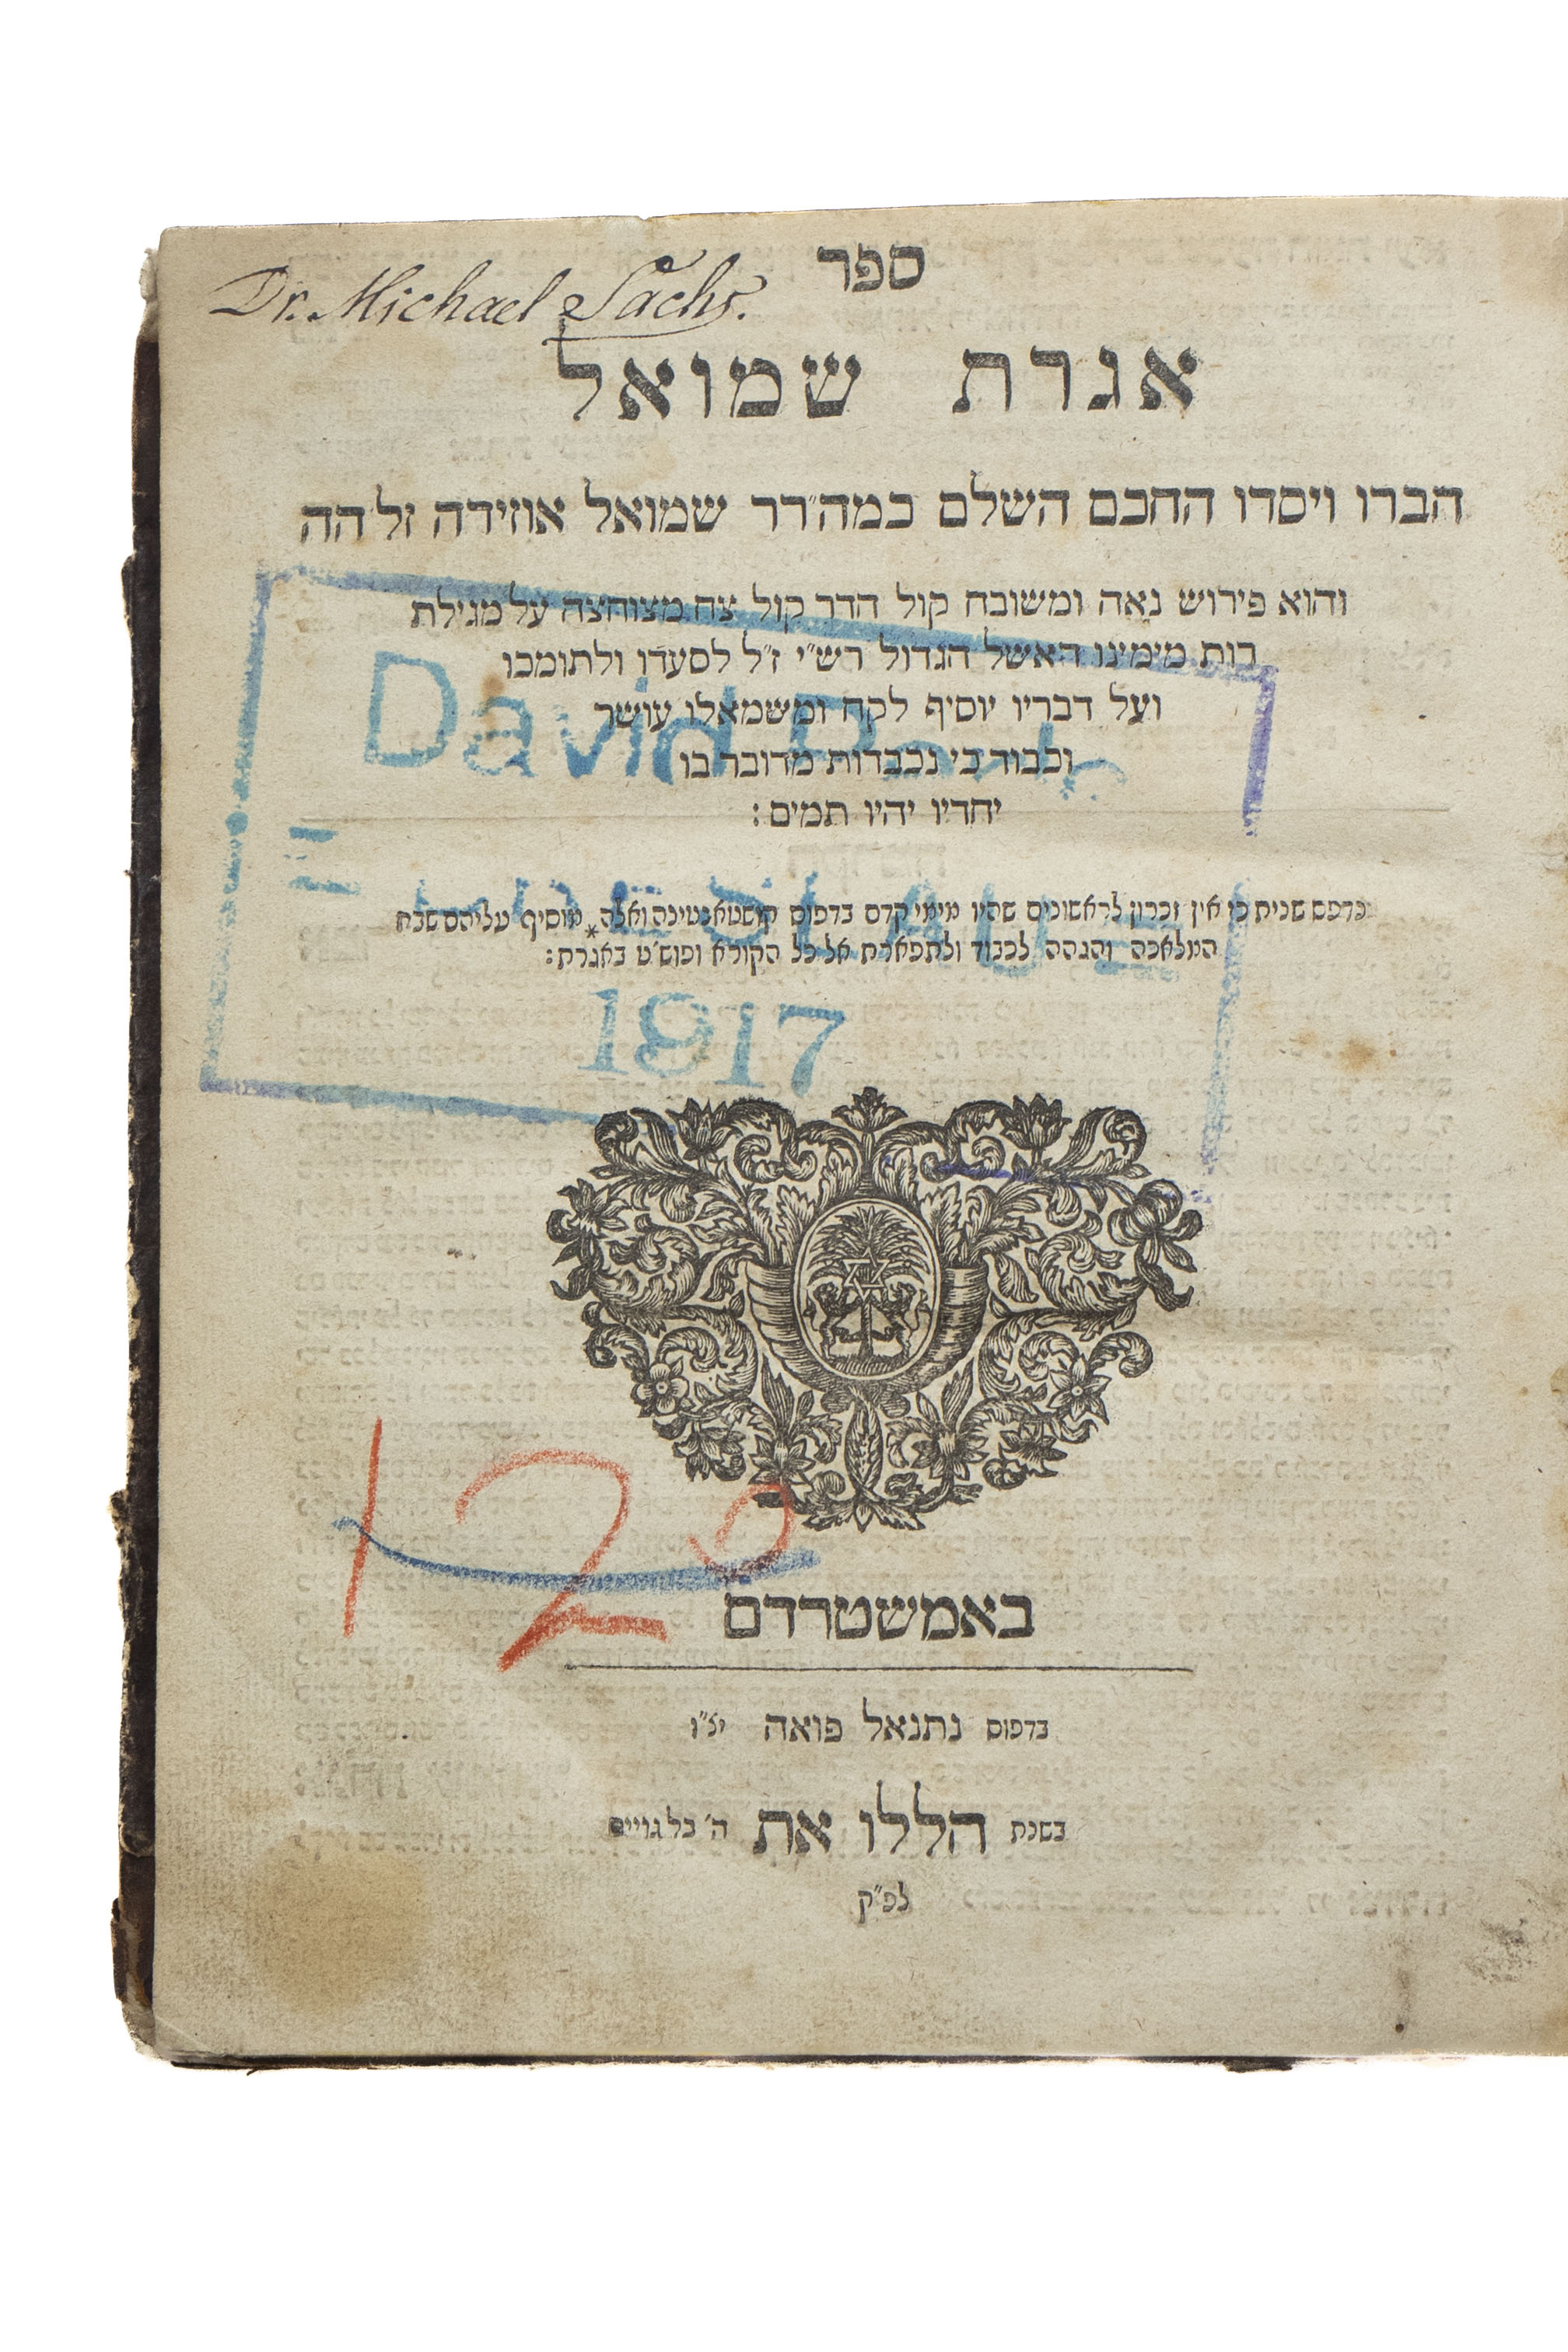 Dr. Michael Sachs.
ספר
אגרת שמואל
חברו ויסדו החכם השלם כמה״רר שמואל אוזידה זל״הה
והוא פירוש נאה ומשובח קול הדר קול צח מצוחצח על מגילת
רות מימינו האשל הגדול רש״י ז״ל לסעדו ולתומכו
ועל דבריו יוסיף לקח ומשמאלו עושר
וכבוד כי נכבדות מדובר בו
יחדיו יהיו תמים:
David
נדפס שנית כי אין זכרון לראשונים שהיו מימי קדם בדפוס קושטאנטינה ואלה * מוסיף עליהם שבח
המלאכה והגהה לכבוד ולתפארת אל כל הקורא ופוש׳ט באגרת:
1917
120
באמשטרדם
בדפוס נתנאל פואה יצ״ו
בשנת הללו את ה׳ כל גויים
לפ״ק